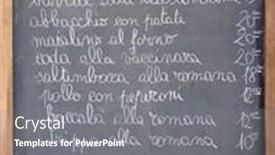 abbacchio con patate 20=
maialino al forno 20=
coda alla vaccinara 20=
saltimbocca alla romana 18=
pollo con peperoni 12=
alla romana 12=
alla romana 10=
Smoothing Comments
Templates for PowerPoint